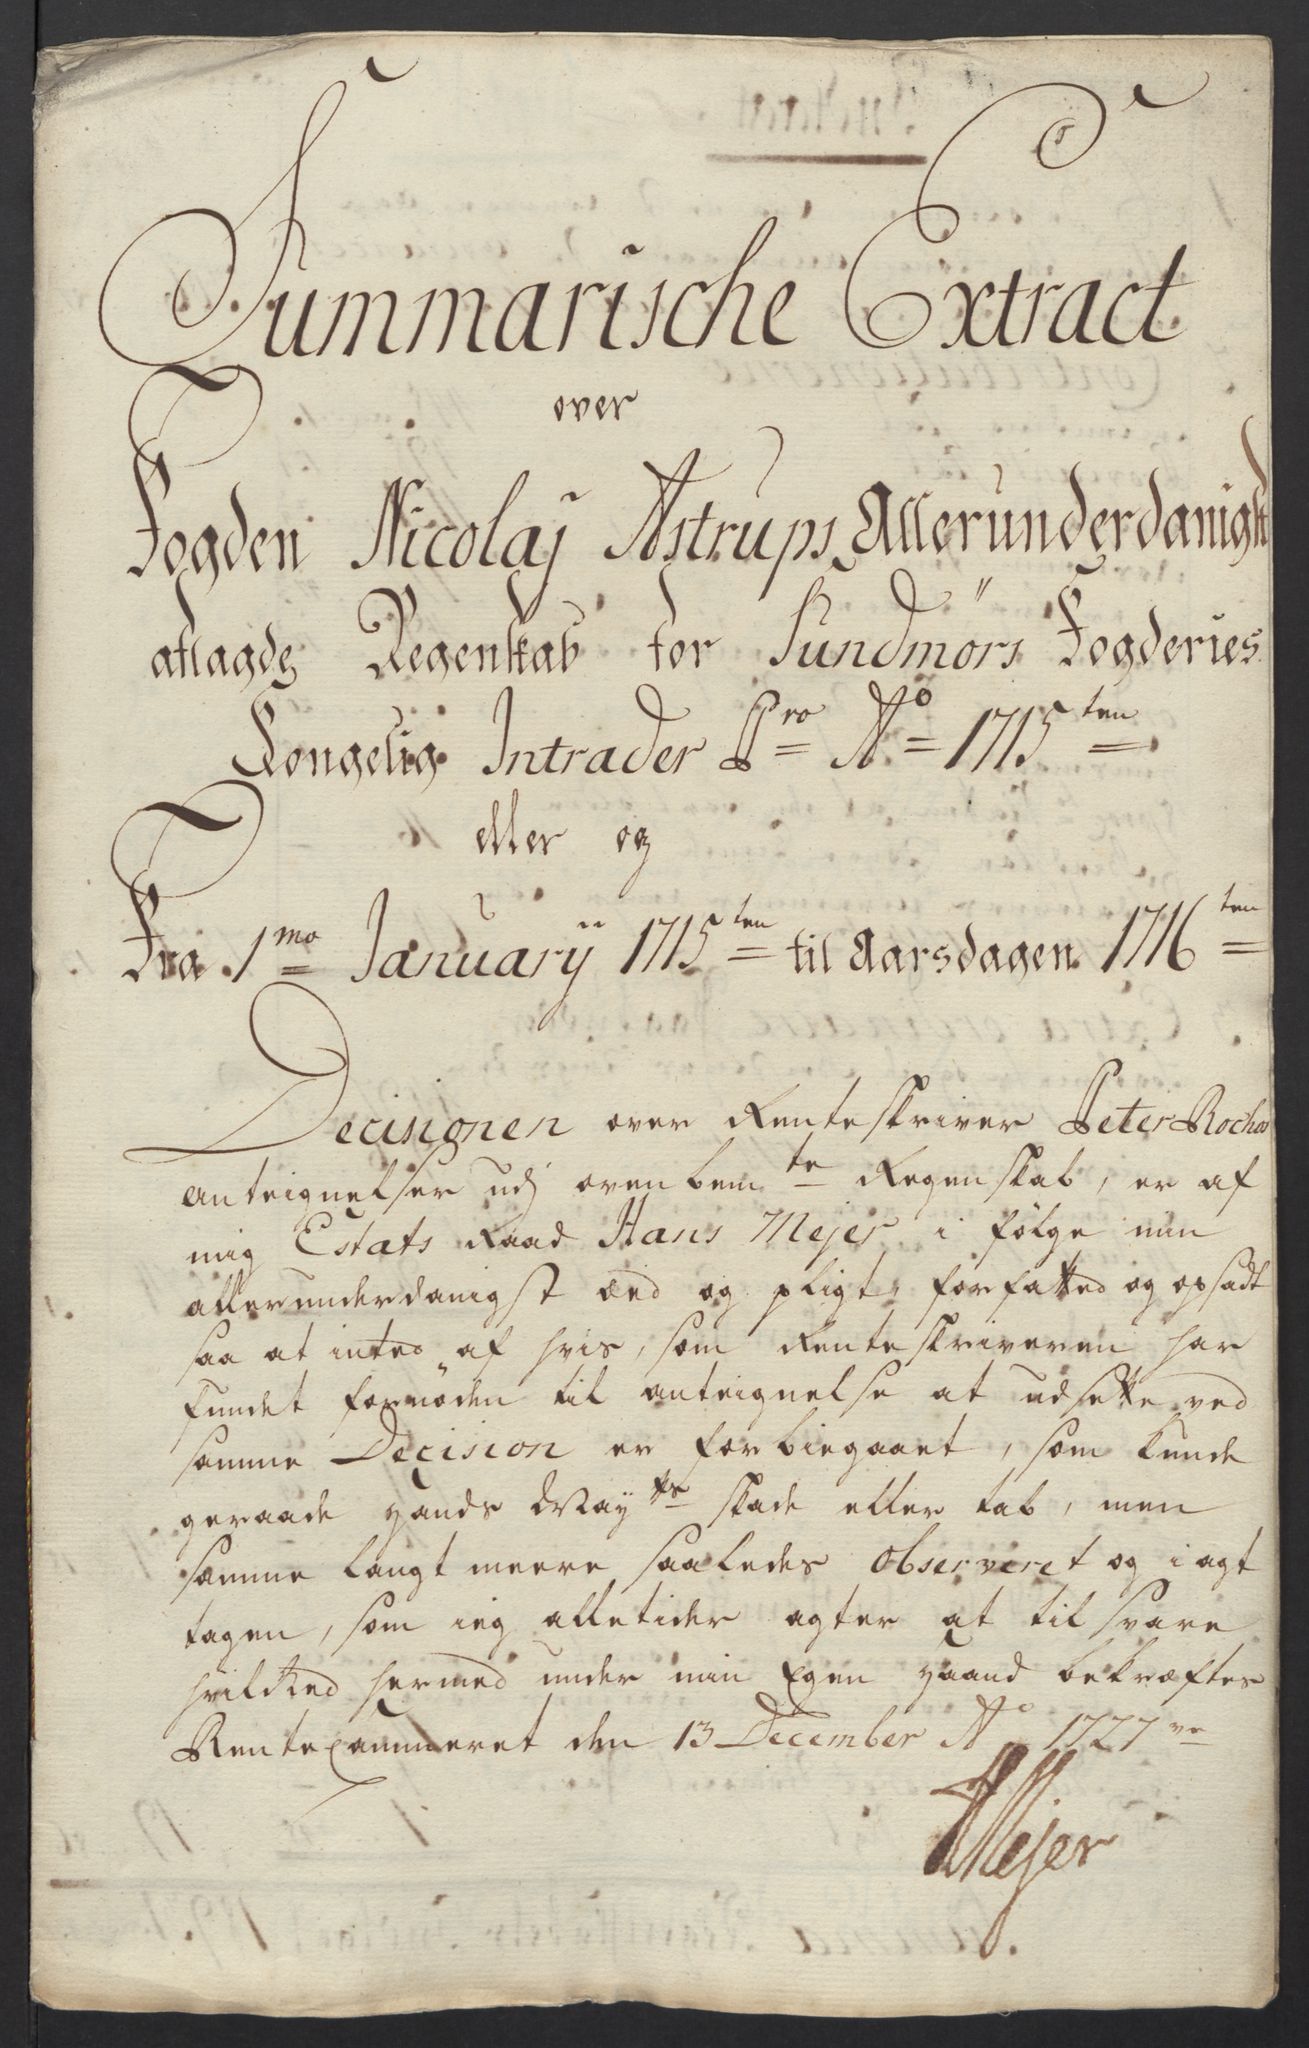 Summarische Extract
over
Fogden Nicolaj Astrups Allerunderdanigst
aflagde Regenskab for Sundmörs Fogderies
Kongelig Intrader Pro Ao 1715ten
eller og
Fra 1mo Januarÿ 1715ten til Aarsdagen 1716ten
Decisionen over Renteskriver Peter
Anteignelser udj ovenbemte Regenskab, er af
mig Estats Raad Hans Mejer i følge min
allerunderdanigst Eed og pligt, forfatted og opsadt
saa at inted af hvis, som Renteskriveren har
fundet fornöden til anteignelse at udsette ved
samme Decision er forbiegaaet, som kunde
geraade Hands Mayts skade eller tab, men
samme langt meere saaledes observeret og i agt
tagen, som ieg alletider agter at til svare
hvilked hermed under min Egen Haand bekræftes
Rentecammeret den 13 December Ao 1727ve
HMejer